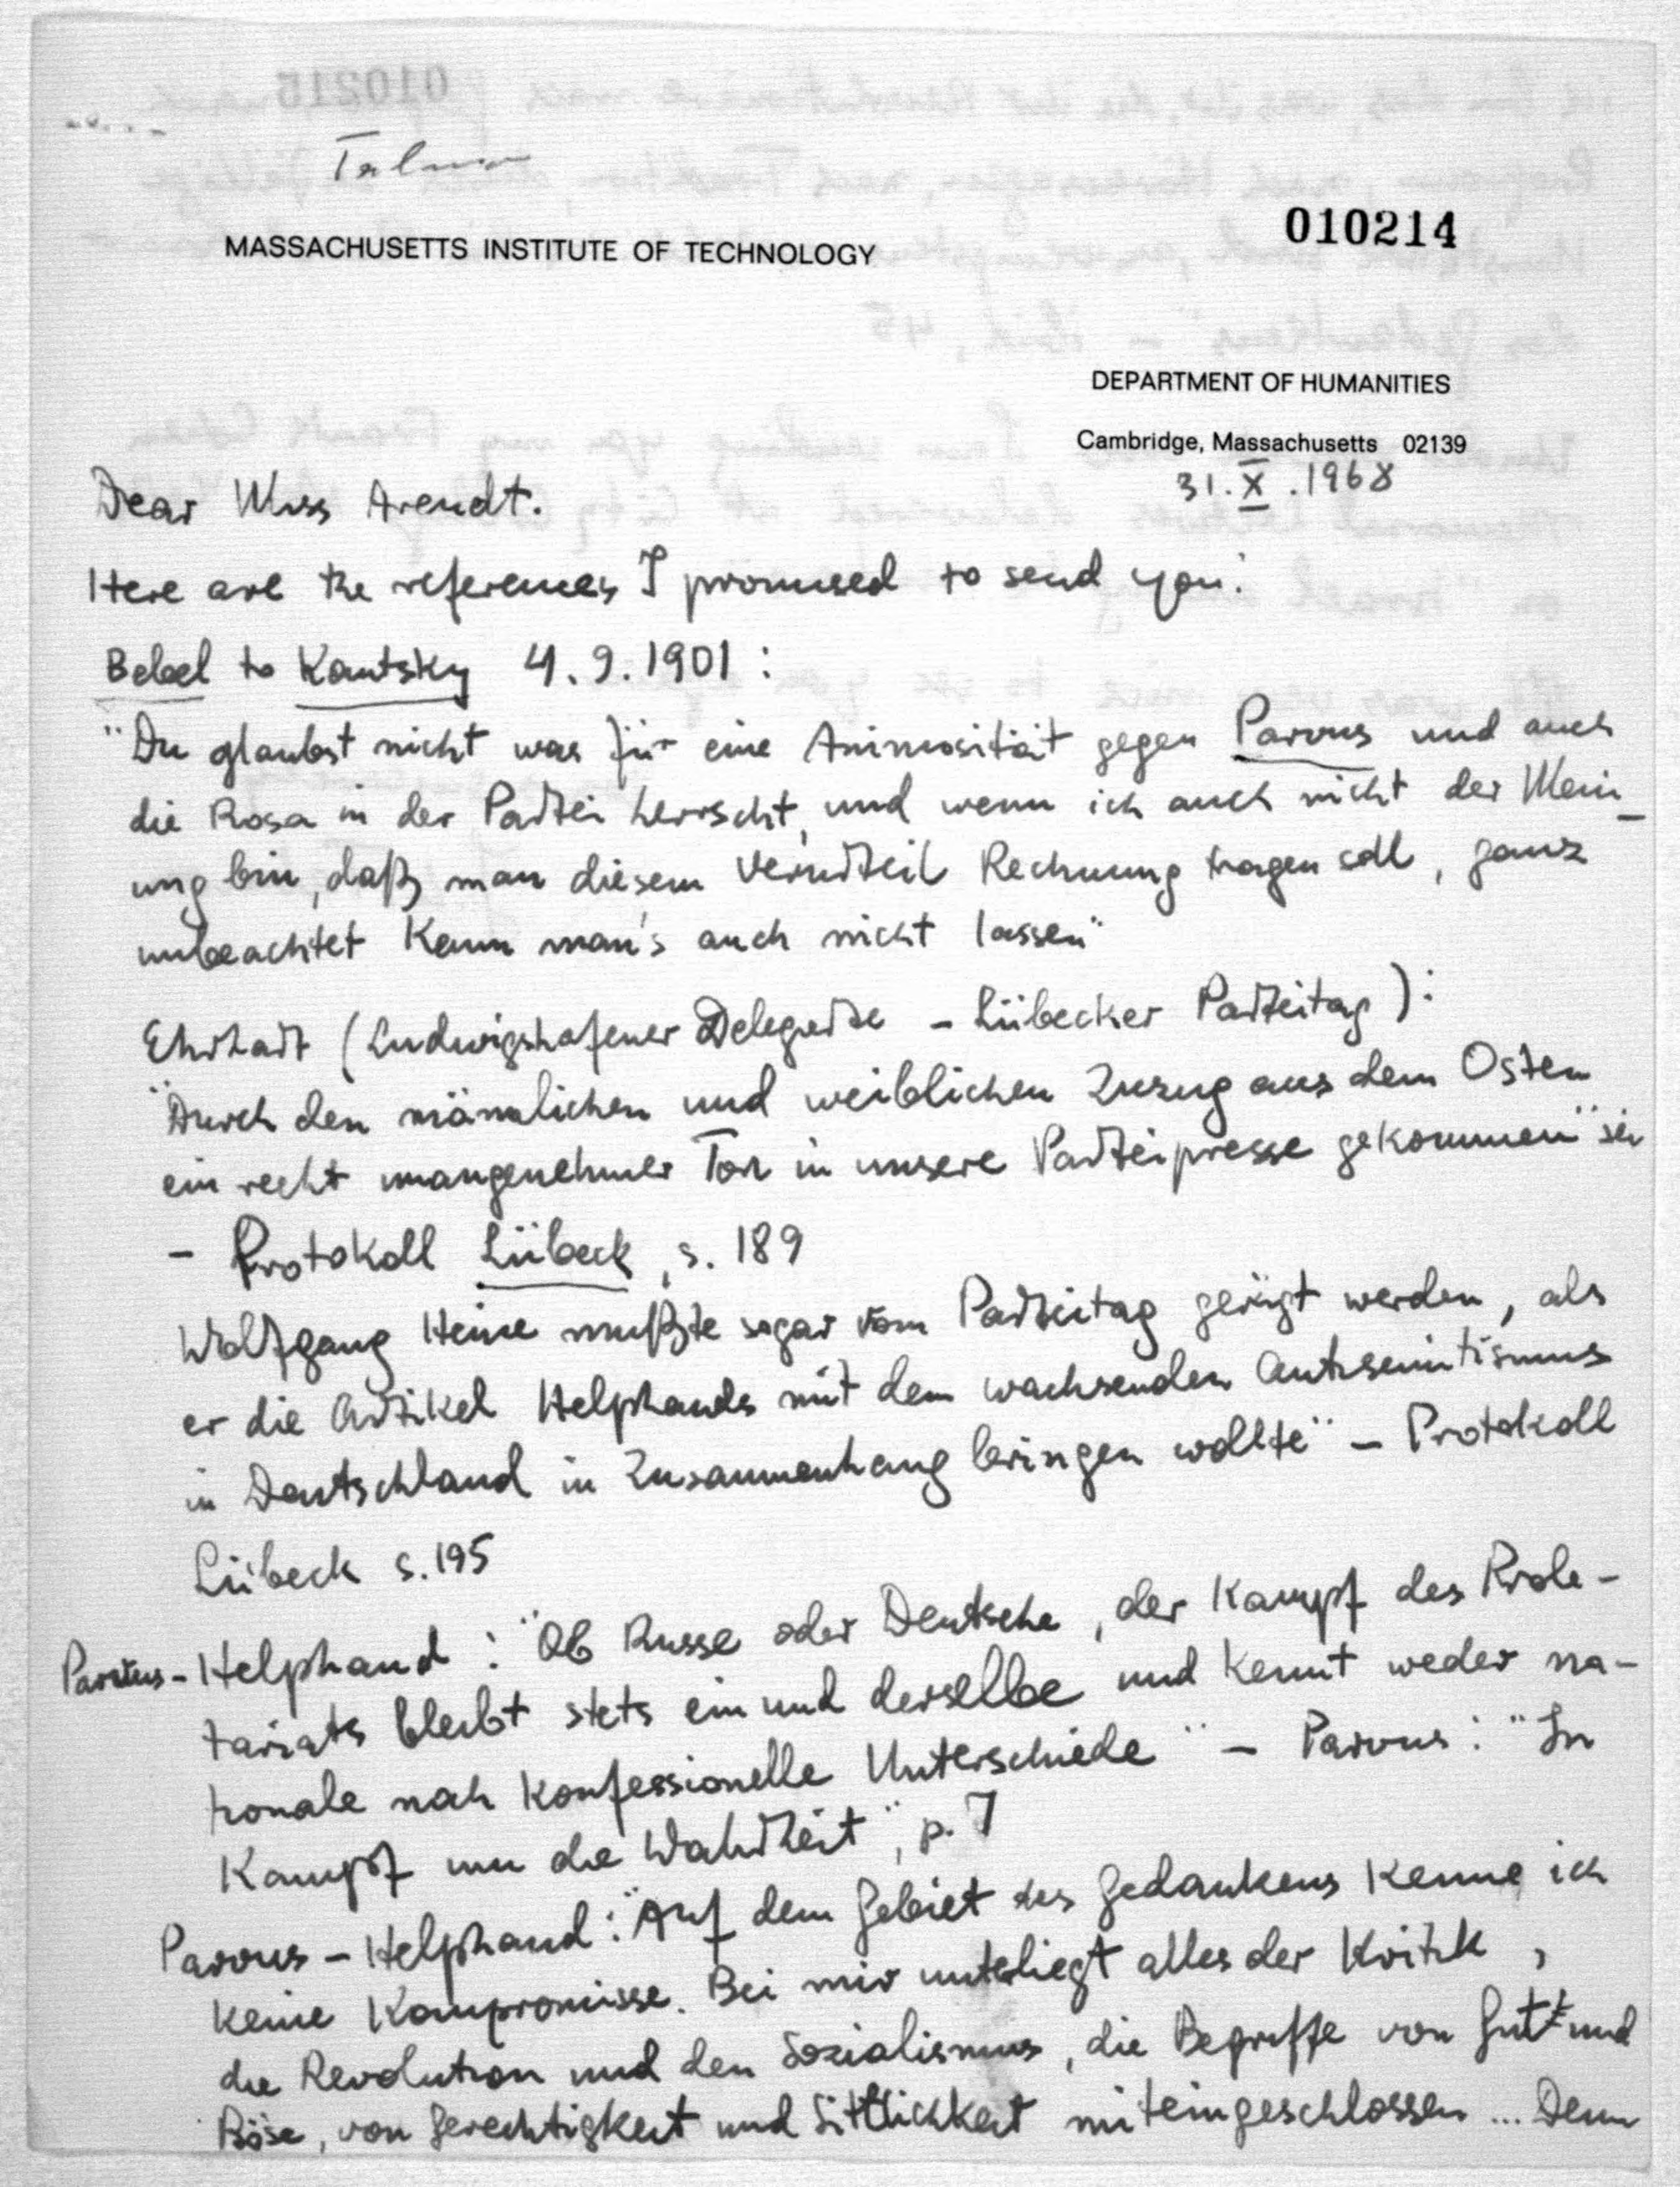 010214
MASSACHUSETTS INSTITUTE OF TECHNOLOGY
DEPARTMENT OF HUMANITIES
Cambridge, Massachusetts 02139
31.X.1968
Dear Miss Arendt.
Here are the references I promised to send you:
Bebel to Kautsky 4.9.1901:
"Du glaubst nicht was für eine Animosität gegen Parvus und auch
die Rosa in der Partei herrscht, und wenn ich auch nicht der Mein-
ung bin, daß man diesem Verurteil Rechnung tragen soll, ganz
unbeachtet kann man's auch nicht lassen"
Ehrhart (Ludwigshafener Delegierte - Lübecker Parteitag):
"Durch den männlichen und weiblichen Zuzug aus dem Osten
ein recht unangenehmer Ton in unsere Parteipresse gekommen" sei
- Protokoll Lübeck, s. 189
Wolfgang Heine mußte sogar vom Parteitag gerügt werden, als
er die Artikel Helphands mit dem wachsenden Antisemitismus
in Deutschland in Zusammenhang bringen wollte" - Protokoll
Lübeck s. 195
Parvus-Helphand: "Ob Russe oder Deutsche, der Kampf des Prole-
tariats bleibt stets ein und derselbe und kennt weder na-
tionale noch konfessionelle Unterschiede" - Parvus: "In
Kampf um die Wahrheit", p. 7
Parvus-Helphand: "Auf dem Gebiet des Gedankens kenne ich
keine Kompromisse. Bei mir unterliegt alles der Kritik,
die Revolution und den Sozialismus, die Begriffe von Gut und
Böse, von Gerechtigkeit und Sittlichkeit miteingeschlossen... Denn